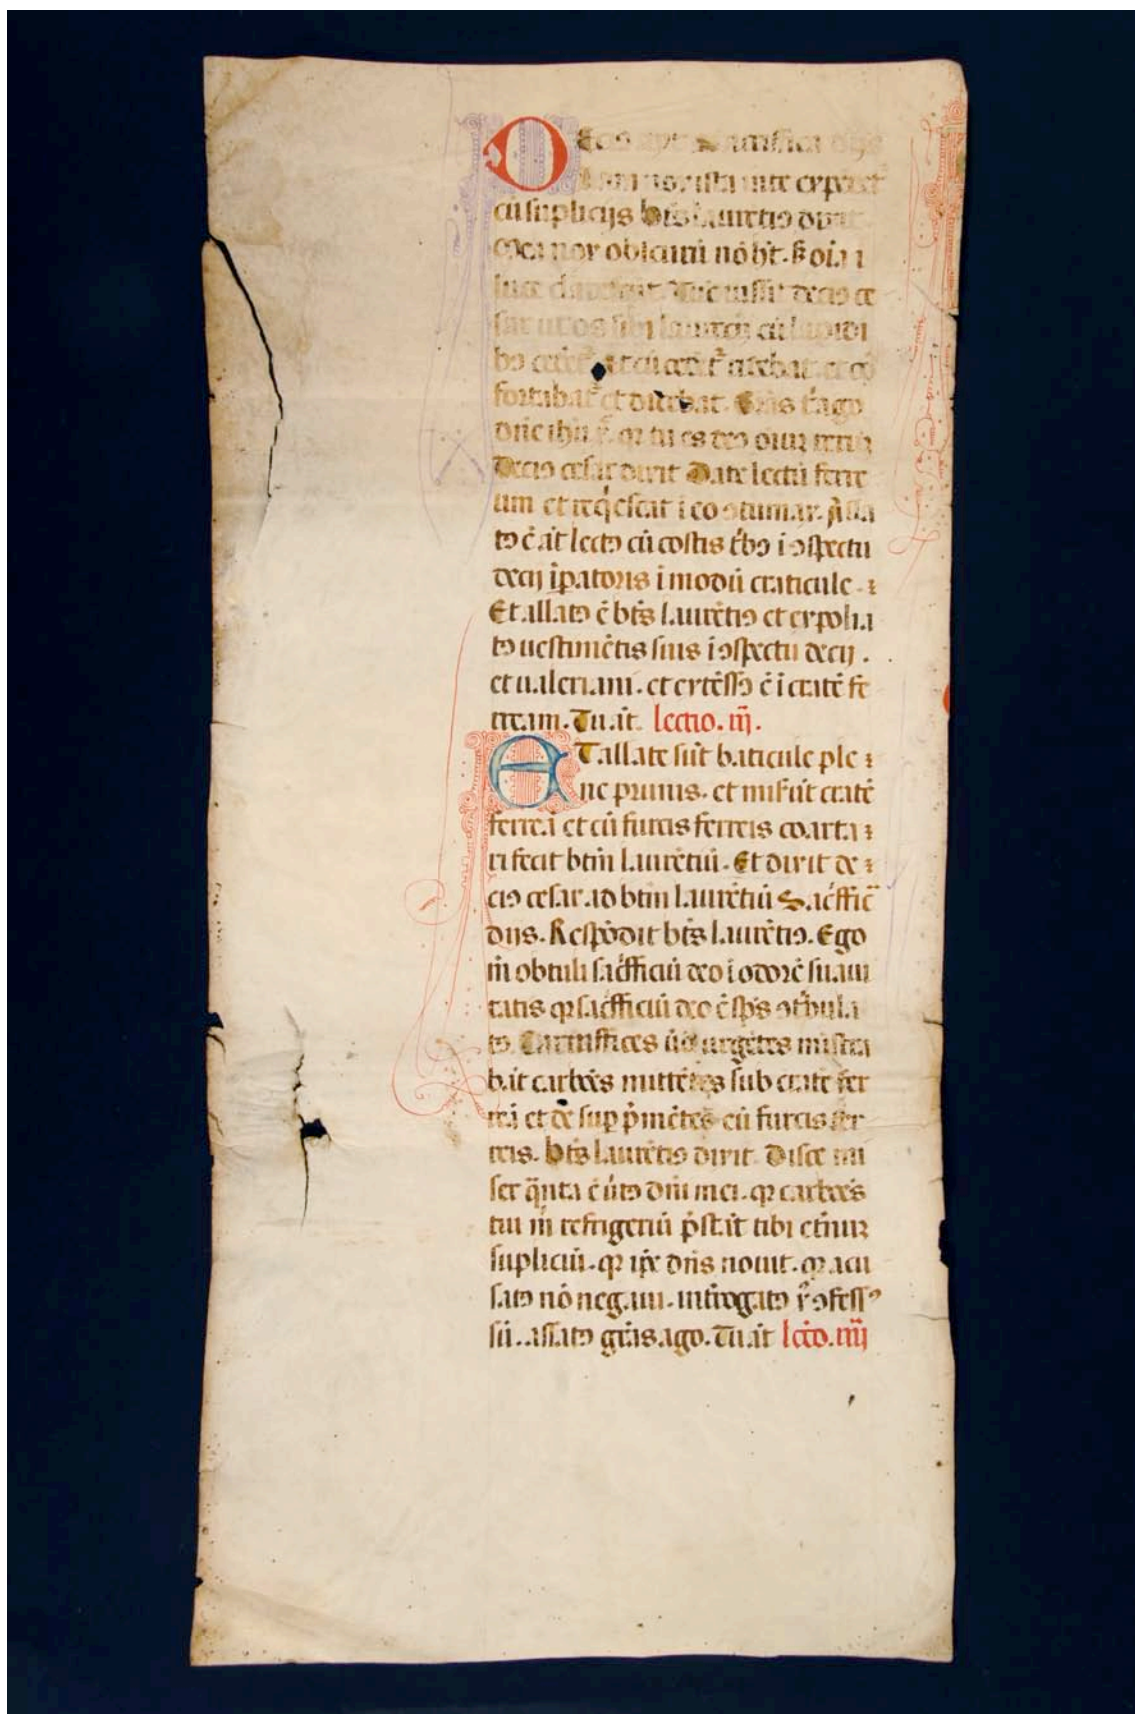 cū supliciis bt̄s laurētiꝰ dix̄
mea nox obscurū nō ht̄. s oīa ī
luce clarescūt. Tūc iussit deciꝰ ce
sar ut os sibi laurētij cū lapidi
bꝰ cederet᷑. et cū cederet᷑ ridebat. et cō
fortabat᷑ et dicebat. Grās t̉ ago
dn̄e ih̄u xp̄e. qꝛ tu es deꝰ oīuꝫ rerū
Deciꝰ cesar dixit Date lectū ferre
um et reqͥescat ī cōtumax. Alla
tꝰ ē aūt lectꝰ cū costis tͥbꝰ ī ꝯspectu
decij īpatoris ī modū craticule.
Et allatꝰ ē bt̄s laurētiꝰ et expolia
tꝰ uestimētis suis ī ꝯspectu decij.
et ualeriani. et extēssꝰ ē ī cratē fe
rream. Tu aūt. lectio. iij.
ET allate sūt baticule ple
ne prunis. et miserūt cratē
ferreā et cū furcis ferreis coarta
ri fecit btm̄ laurētiū. Et dixit de
ciꝰ cesar ad btm̄ laurētiū Sacͥffic̄
diis. Respōdit bt̄s laurētiꝰ. Ego
m̄ obtuli sacͥfficiū deo ī odorē suaui
tatis qꝛ sacͥfficiū deo ē sp̄s ꝯtͥbula
tꝰ. Carniffices ūo urgētes mistra
bāt carbōēs mittētes sub cratē fer
reā et de sup p̄mētes cū furcis fer
reis. bt̄s laurētiꝰ dixit. Disce mi
ser qͣnta ē ūtꝰ dn̄i mei. qꝛ carbōēs
tui m̄ refrigeriū p̄stāt tibi et̄nuꝫ
supliciū. qꝛ ip̄e dn̄s nouit. qꝛ acu
satꝰ nō negaui. int̄rogatꝰ xp̄ ꝯfessꝰ
sū. assatꝰ grās ago. Tu aūt lc̄io. iiij